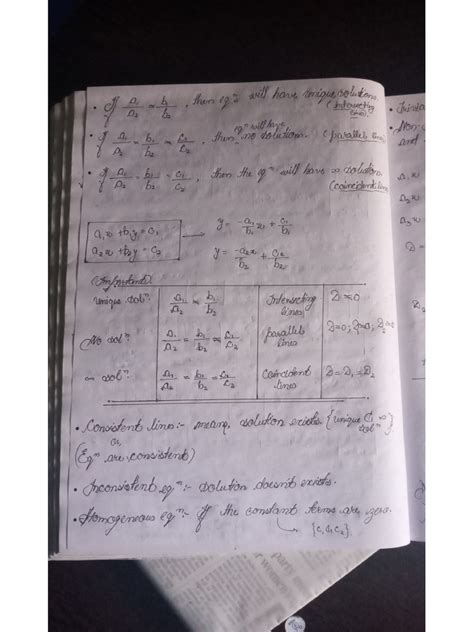 • If a₁/a₂ ≠ b₁/b₂, then eqⁿ will have unique solutions. (intersecting lines).
• If a₁/a₂ = b₁/b₂ ≠ c₁/c₂, then eqⁿ will have no solutions. (parallel lines)
• If a₁/a₂ = b₁/b₂ = c₁/c₂, then the eqⁿ will have ∞ solutions (coincident lines
a₁x + b₁y = c₁ → y = -a₁x/b₁ + c₁/b₁
a₂x + b₂y = c₂ y = -a₂x/b₂ + c₂/b₂
(Important)
Unique solⁿ. a₁/a₂ ≠ b₁/b₂ Intersecting lines D ≠ 0
No solⁿ. a₁/a₂ = b₁/b₂ ≠ c₁/c₂ parallel lines D=0;
∞ solⁿ. a₁/a₂ = b₁/b₂ = c₁/c₂ Coincident lines D = D₁ = D₂
• Consistent lines:- means, solution exists {unique or ∞ solⁿ}
or,
(Eqⁿ are consistent)
• Inconsistent eqⁿ:- solution doesn't exists.
• Homogeneous eqⁿ:- If the constant terms are zero.
→ {c, c₁ c₂}
• Non-
and
a₂x
a₃x
D =
D₁
D₂